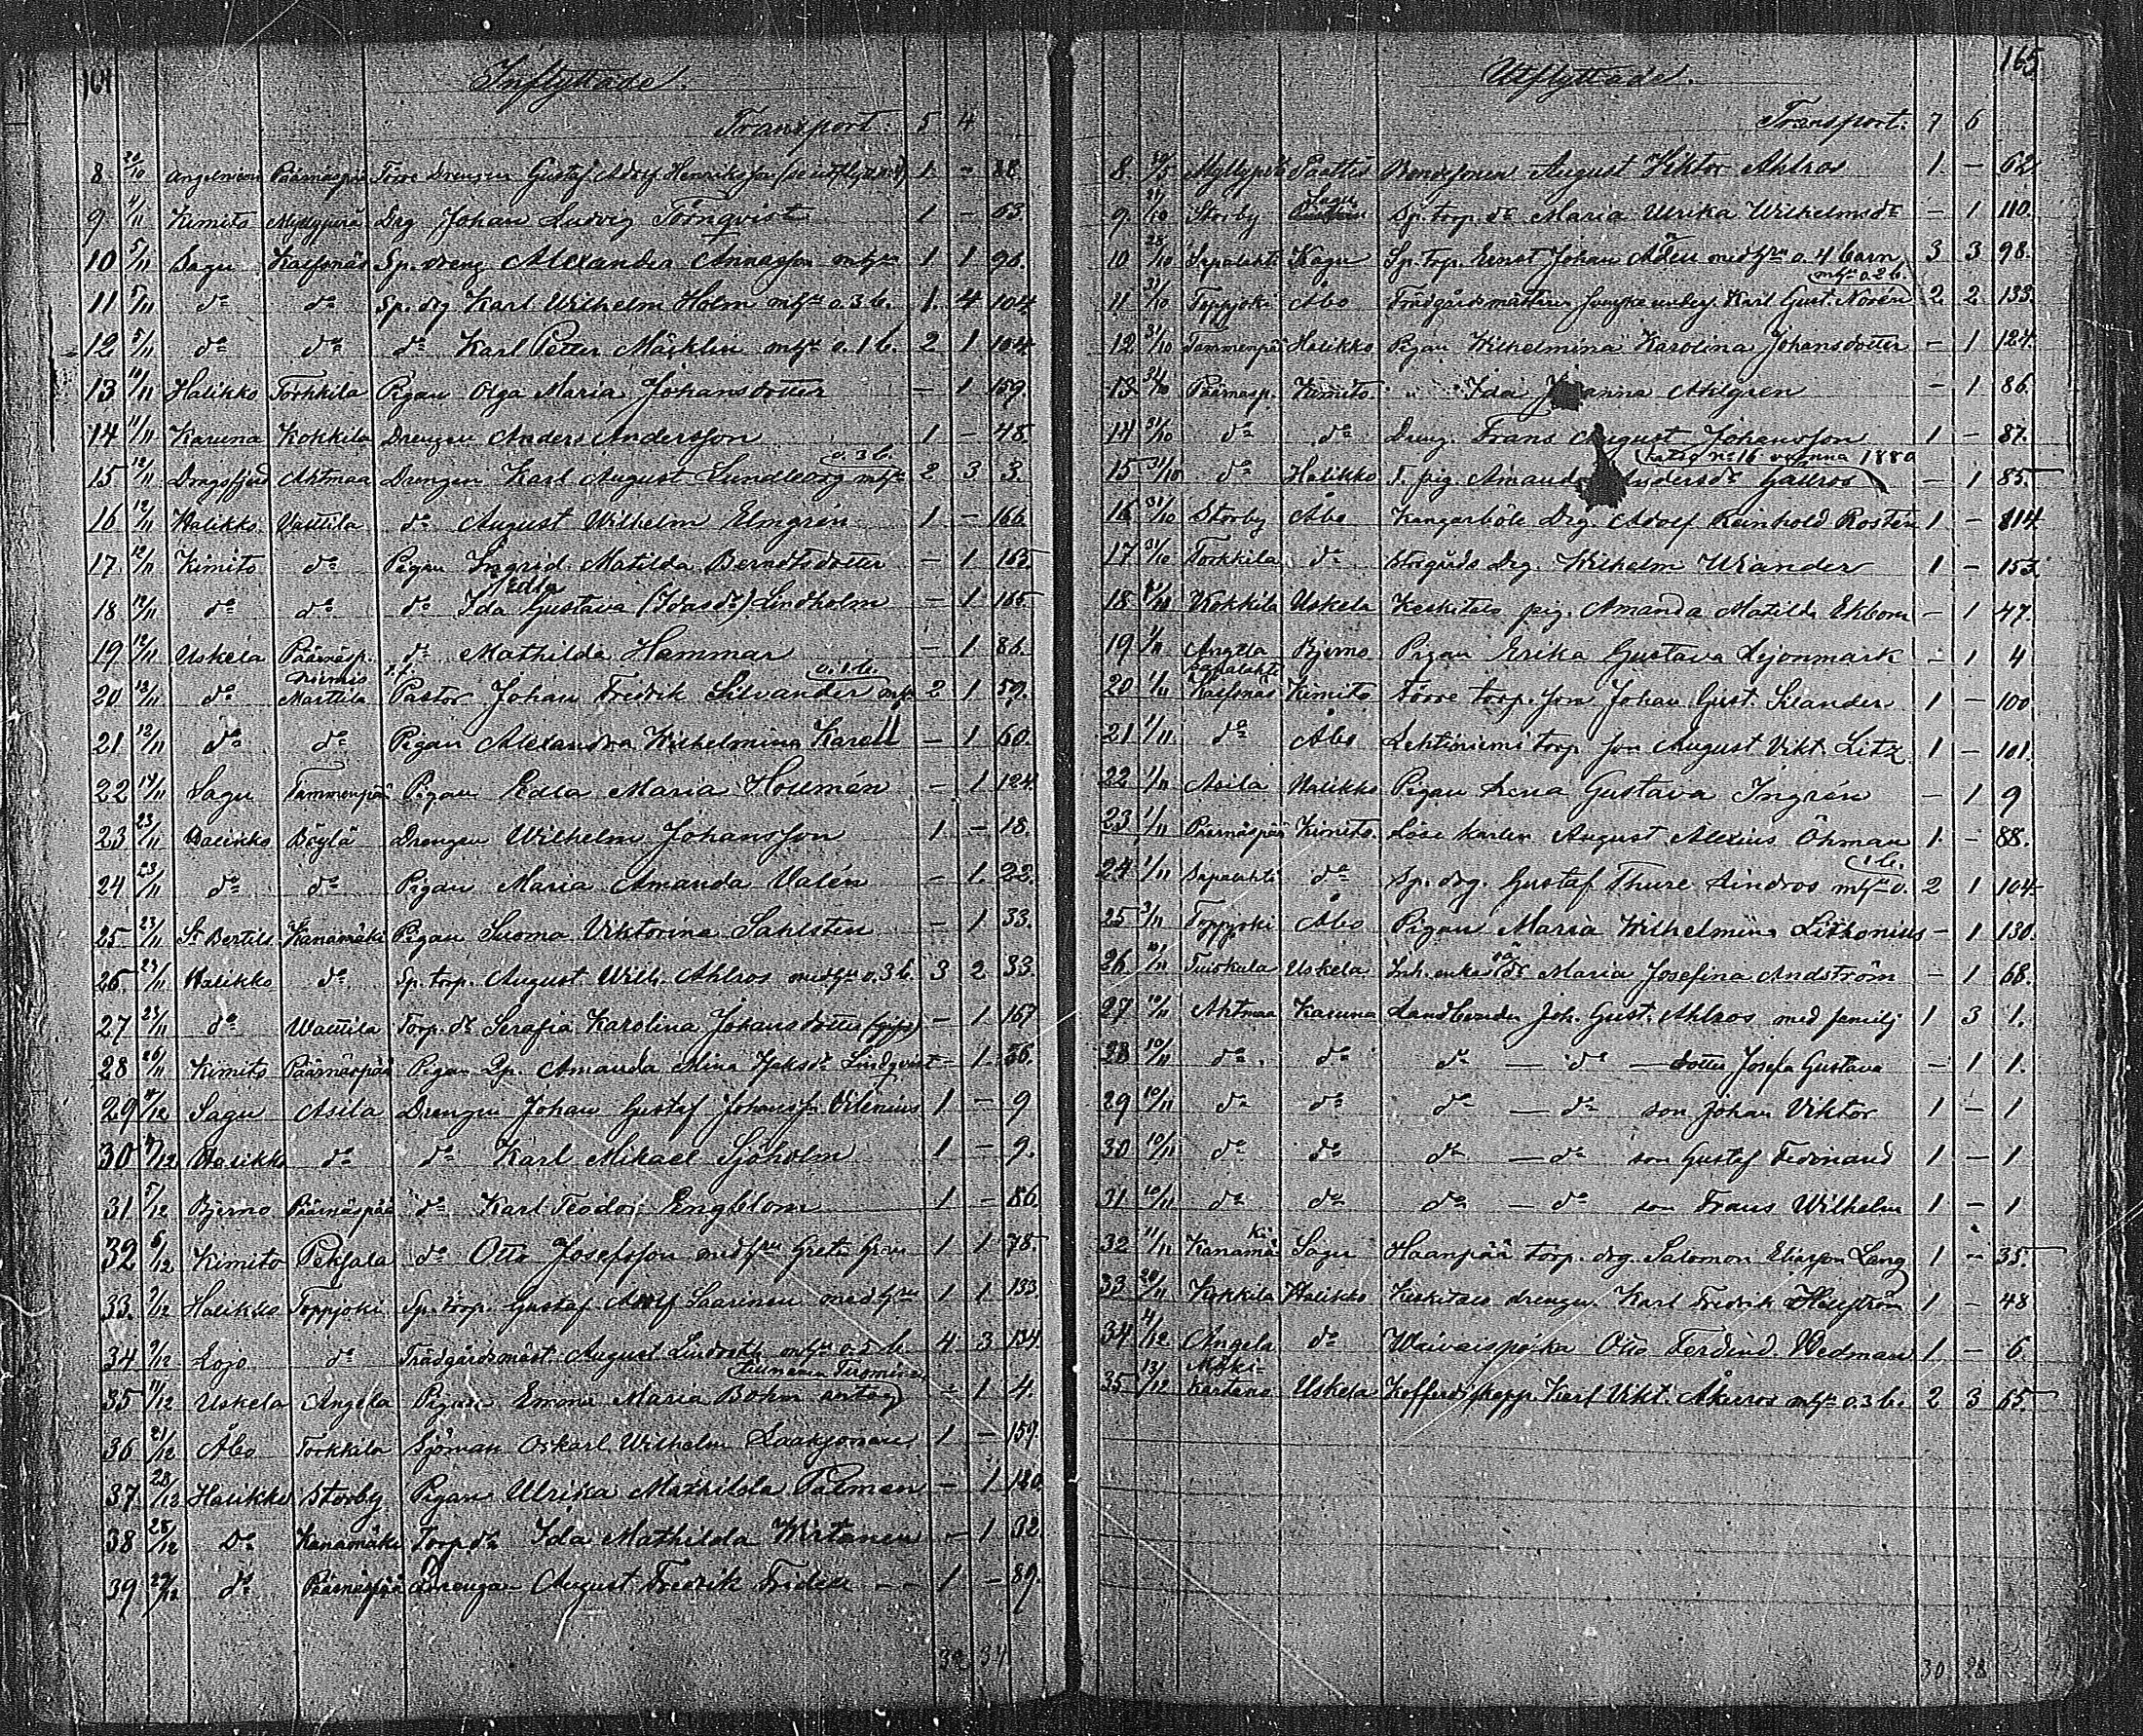 Inflyttade.
Transport 5 4
8 20/10 Angelniemi Päärnäspää Torre Drengen Gustaf Adolf Henriksson 1 - 88
9 4/11 Kimito Myllyperä Drg Johan Ludvig Törnqvist 1 - 63
10 5/11 Sagu Kaifsnäs Sp. dreng Alexander Annasson mhu 1 1 98.
11 5/11 do do Sp. drg Karl Wilhelm Holm mhu o. 3 b. 1. 4 104
12 5/11 do do do Karl Petter Mäsklin mhu o. 1 b. 2 1 104
13 10/11 Halikko Torkkila Pigan Olga Maria Johansdotter - 1 159.
14 11/11 Karuna Kokkila Drengen Anders Andersson 1 - 48.
15 12/11 Dragsfjerd Ahtmaa Drengen Karl August Lundberg mhu o. 3 b. 2 3 3.
16 12/11 Halikko Vattila do August Wilhelm Elmgrén 1 - 166
17 12/11 Kimito do Pigan Ingrid Matilda Berndtsdotter - 1 165
18 12/11 do do do Ida Edla Gustava (Idasdr) Lindholm - 1 165
19 12/11 Uskela Päärnäsp. do Mathilda Hammar - 1 86.
20 12/11 do Niemis Marttila Pastor Johan Fredrik Silvander mhu o. 1 b. 2 1 59.
21 12/11 do do Pigan Alexandra Wilhelmina Karell - 1 60.
22 14/11 Sagu Tammenpää Pigan Edla Maria Holmén - 1 124.
23 23/11 Halikko Böylä Drengen Wilhelm Johansson 1 - 18.
24 23/11 do do Pigan Maria Amanda Valén - 1. 22.
25 23/11 St Bertils Kanamäki Pigan Suoma Viktorina Sahlsten - 1 33.
26 23/11 Halikko do Sp. torp. August Wilh. Ahlros medhu o. 3 b. 3 2 33.
27 23/11 do Wattila Torp. dr Serafia Karolina Johansdotter (gift) - 1 167
28 26/11 Kimito Päärnäspää Pigan Amanda Mina Lindqvist - 1. 56.
29 4/12 Sagu Asila Drengen Johan Gustaf Johanss. Vilenius 1 - 9
30 4/12 Halikko do do Karl Mikael Sjöholm 1 - 9.
31 5/12 Bjerno Päärnäspää do Karl Teodor Engblom 1 - 86.
32 6/12 Kimito Peksala do Otto Josefsson medhu Greta 1 1 78.
33. 9/12 Halikko Toppjoki Sp. torp. Gustaf Adolf Saarinen medhu 1 1 133.
34 9/12 Lojo do Trädgårdsmäst. August Lindroth mhu o. 5 b 4 3 134.
35 11/12 Uskela Angela Pigan Emma Maria Bohm - 1 4.
36 21/12 Åbo Torkkila Sjöman Oskarl Wilhelm Laaksonen 1 - 159.
37 28/12 Halikko Storby Pigan Ulrika Mathilda Palman - 1 120.
38 28/12 Do Kanamäki Torp. dr Ida Mathilda Wirtanen - 1 32.
39 29/12 do Päärnäspää Drengen August Fredrik Fridell - 1 - 89.
165
Utflyttade.
Transport. 7 6
8. Myllyperä Paattis Bondesonen August Viktor Ahlros 1 - 62
9 21/10 Storby Sagu Sp. torp. dr Maria Ulrika Wilhelmsdr - 1 110.
10 28/10 Sapalahti Sagu Sp. torp. Ernst Johan Adén medhu o. 4 barn 3 3 98.
11 31/10 Toppjoki Åbo Trädgårdsmästaren Karl Gust. Norén mhu o. 2 b. 2 2 133.
12 31/10 Tammenpää Halikko Pigan Wilhelmina Karolina Johansdotter - 1 124.
13. 31/10 Päärnäsp. Kimito " Ida Johanna Ahlgren - 1 86.
14 31/10 do do Dreng. Frans August Johansson 1 - 87.
15 31/10 do Halikko F. pig. Amanda Andersdr Gallros - 1 85
16 31/10 Storby Åbo Kangasböle Drg. Adolf Reinhold Rostén 1 - 114
17 31/10 Torkkila do Storgårds drg. Wilhelm Wiander 1 - 153
18 Kokkila Uskela Keskitalo pig. Amanda Matilda Ekbom - 1 47.
19 1/11 Angela Bjerno Pigan Erika Gustava Lejonmark - 1 4
20 1/11 Sapalahti Kaifsnäs Kimito Torre torp. son Johan Gust. Selander 1 - 100
21 1/11 do Åbo Lehtiniemi torp. son August Vikt. Litz 1 - 101.
22 1/11 Asila Halikko Pigan Lena Gustava Ingrén - 1 9
23 1/11 Päärnäspää Kimito Löse karlen August Alexius Öhman 1. - 88.
24 1/11 Sapalahti do Sp. drg. Gustaf Thure Lindros mhu o. 1 b. 2 1 104
25 3/11 Toppjoki Åbo Pigan Maria Wilhelmina Litkonius - 1 130.
26 Tuiskula Uskela Inh. enka Maria Josefina Andström - 1 68.
27 10/11 Ahtmaa Karuna Landbonden Joh. Gust. Ahlros med familj 1 3 1.
28 10/11 do do do — do — dotter Josefa Gustava - 1 1.
29 10/11 do do do — do son Johan Viktor 1 - 1
30 10/11 do do do — do son Gustaf Ferdinand 1 - 1
31 10/11 do do do — do son Frans Wilhelm 1 - 1
32 11/11 Kanamäki Sagu Haanpää torp. drg. Salomon Eliasson Lang 1 - 35.
33 20/11 Kokkila Halikko Keskitalo drengen Karl Fredrik Hellström 1 - 48
34 4/12 Angela do Waivaispoika Otto Ferdind Wedman 1 - 6.
35 13/12 Mäki- Karteno Uskela Kofferdiskepp. Karl Vikt. Åkerros mhu o. 3 b. 2 3 65
30 28